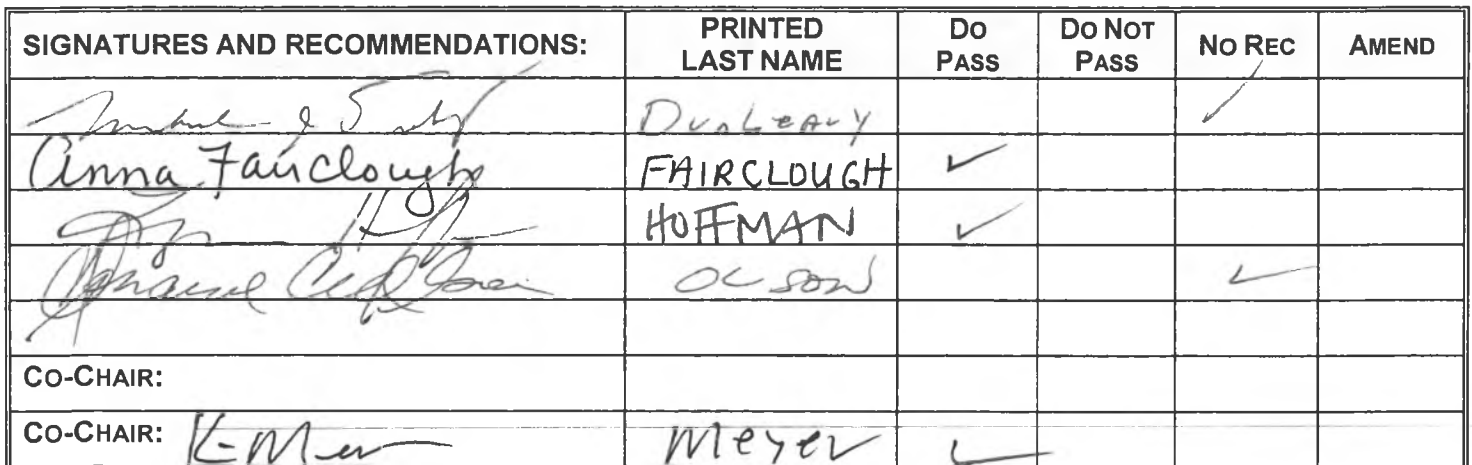 SIGNATURES AND RECOMMENDATIONS: PRINTED LAST NAME DO PASS DO NOT PASS NO REC AMEND
DunLeavy ✓
Anna Fairclough FAIRCLOUGH ✓
HOFFMAN ✓
OLSON ✓
CO-CHAIR:
CO-CHAIR: Meyer ✓